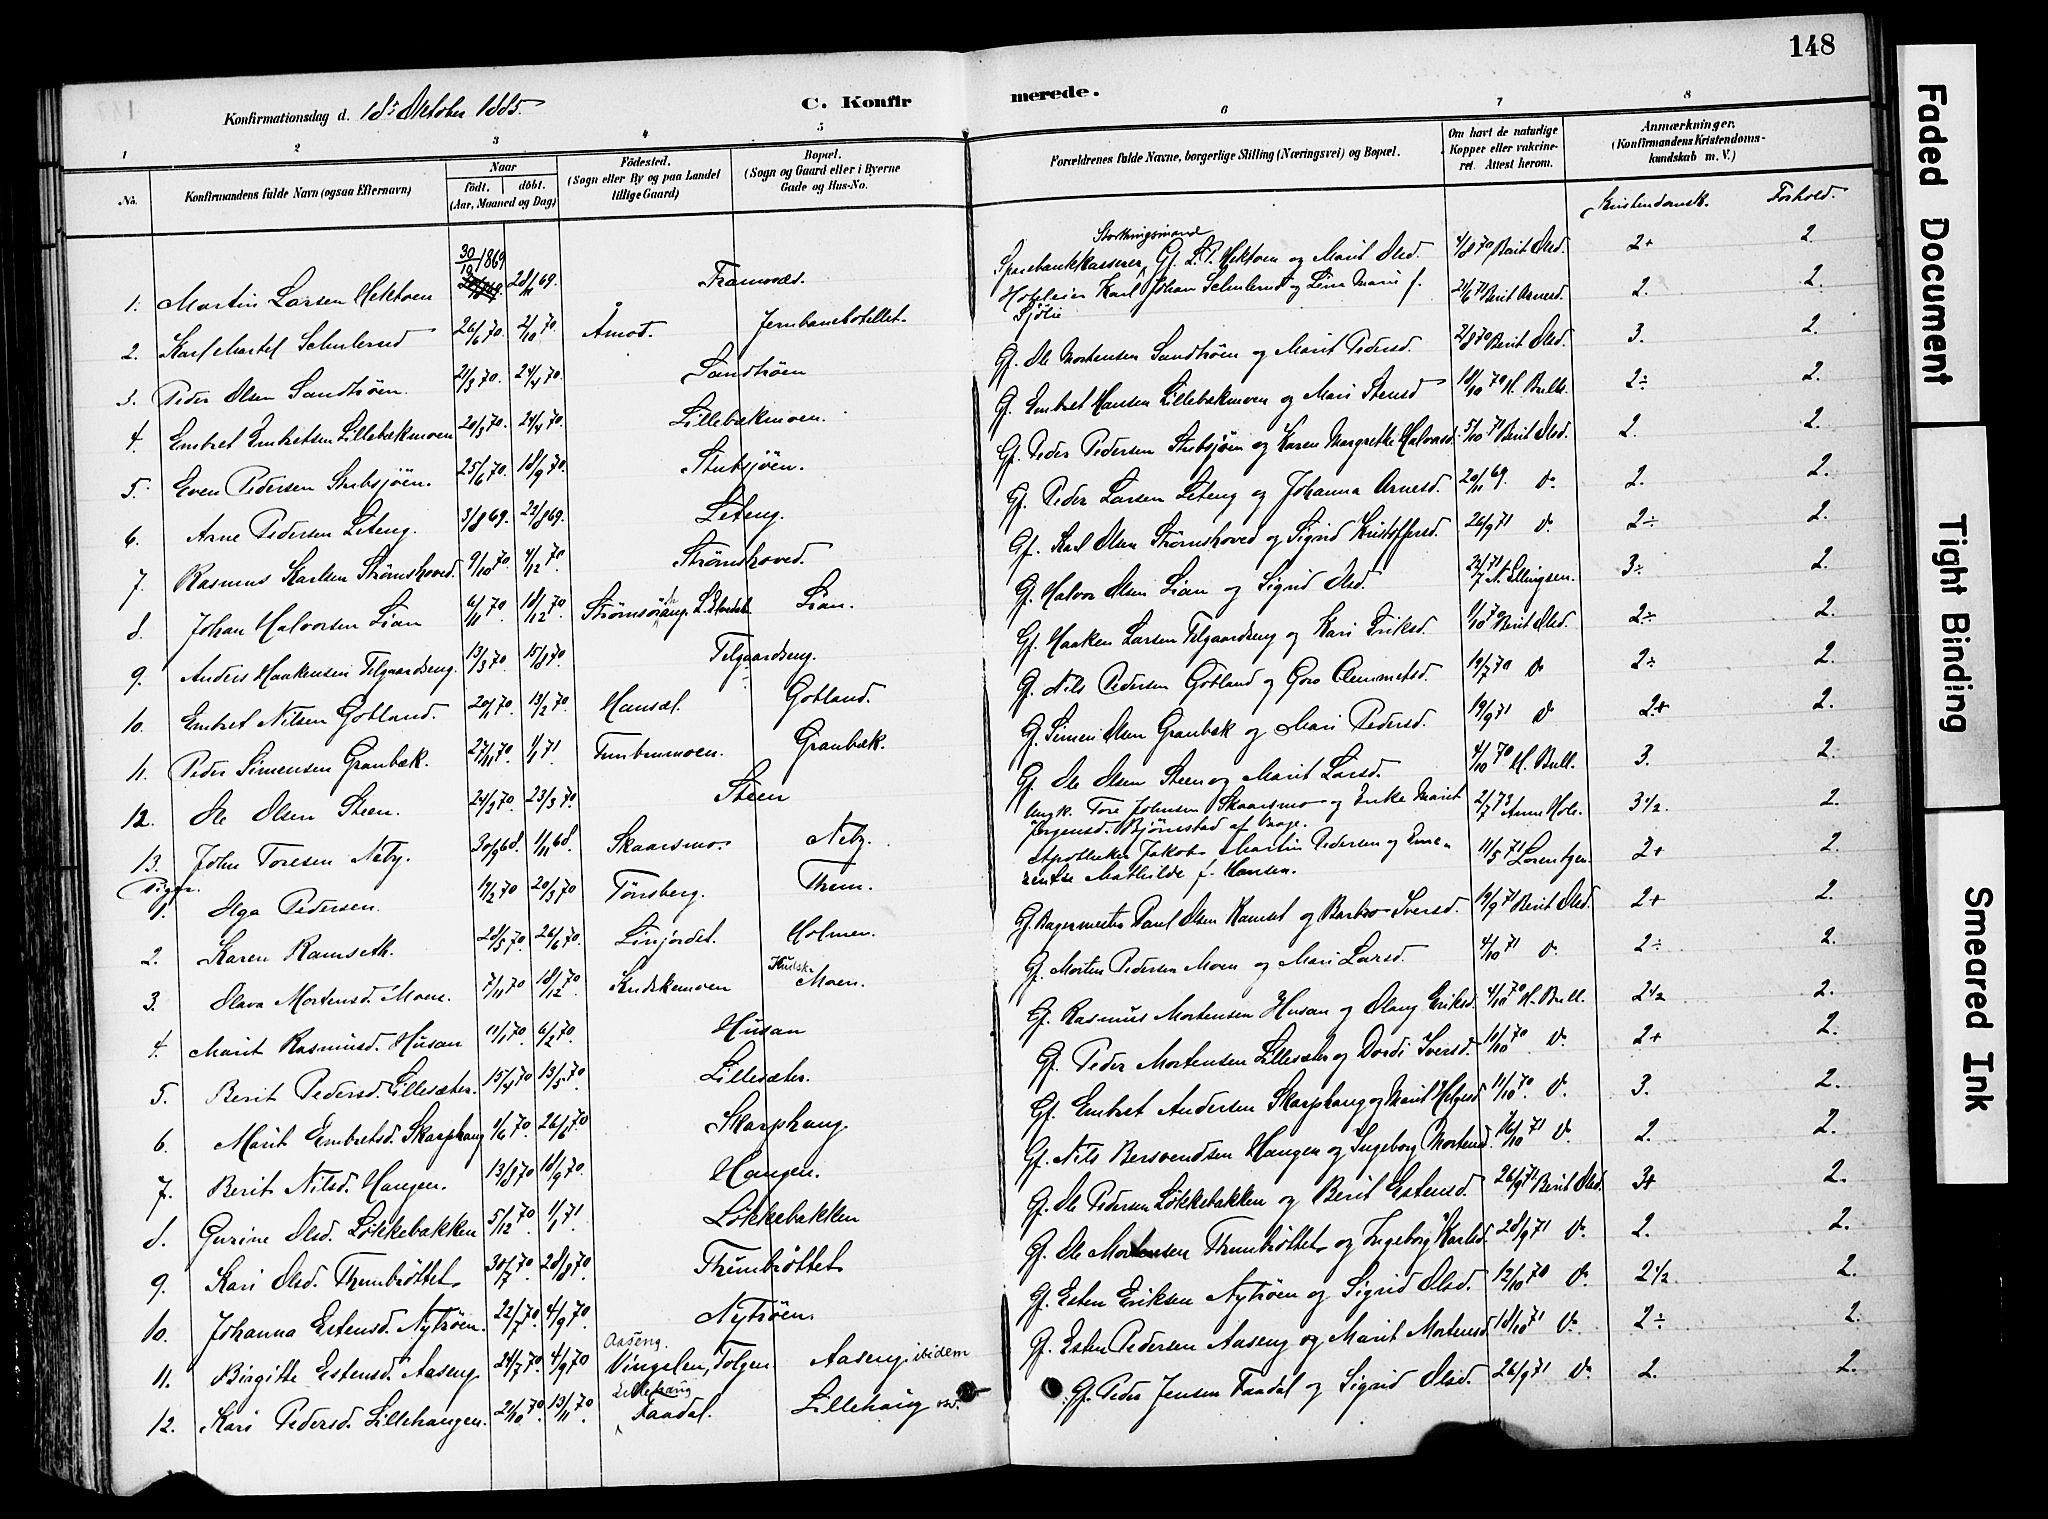 148
Konfirmationsdag d. 18de Oktober 1885.
C. Konfirmerede.
1 2 3 4 5 6 7 8
No.
Konfirmandens fulde Navn (ogsaa Efternavn)
Naar
født. døbt.
(Aar, Maaned og Dag)
Fødested.
(Sogn eller By og paa Landet
tillige Gaard)
Bopæl.
(Sogn og Gaard eller i Byerne
Gade og Hus-No.
Forældrenes fulde Navne, borgerlige Stilling (Næringsvei) og Bopæl.
Om havt de naturlige
Kopper eller vakcine-
ret. Attest herom.
Anmærkninger.
(Konfirmandens Kristendoms-
kundskab m. V.)
Kristendomsk. Forhold.
1. Martin Larsen Hektoen 30/10 1869 28/11 69. Framnæs. Sparebankkasserer, Storthingsmand Gf. L. P. Hektoen og Marit Olsd. 4/8 70 Berit Olsd. 2+ 2.
2. Karl Martel Schulerud 26/6 70. 2/10 70. Åmot. Jernbanehotellet. Hoteleier Karl Johan Schulerud og Lina Marie f. Sjølie 21/6 71 Berit Arnesd. 2. 2.
3. Peder Olsen Sandtrøen. 21/3 70. 24/4 70. Sandtrøen Gf. Ole Mortensen Sandtrøen og Marit Pedersd. 2/8 70 Berit Olsd. 3. 2.
4. Embret Embretsen Lillebækmoen 20/3 70. 24/4 70. Lillebækmoen. G. Embret Hansen Lillebækmoen og Mari Stensd 18/10 70 H. Bull. 2÷ 2.
5. Even Pedersen Stubsjøen. 25/6 70. 18/9 70. Stubsjøen. Gf. Peder Pedersen Stubsjøen og Karen Margrethe Halvorsd. 5/10 71 Berit Olsd. 2. 2.
6. Arne Pedersen Leteng. 3/8 69. 22/8 69. Leteng. Gf. Peder Larsen Leteng og Johanna Arnesd. 20/11 69. do. 2. 2.
7. Rasmus Karlsen Strømshoved. 9/10 70. 4/12 70. Strømshoved. Gf. Karl Olsen Strømshoved og Sigrid Kristoffersd. 26/9 71 do. 2÷ 2.
8. Johan Halvorsen Lian 6/11 70. 18/12 70. Lian. Gf. Halvor Olsen Lian og Sigrid Olsd. 22/7 71 N. Ellingsen. 3÷ 2.
9. Anders Haakensen Telgaardseng. 13/3 70. 15/8 70. Telgaardseng. Gf. Haaken Larsen Telgaardseng og Kari Eriksd. 1/10 70 Berit Olsd. 2÷ 2.
10. Embret Nilsen Gotland. 20/1 70. 13/2 70. Hamsæt. Gotland. G. Nils Pedersen Gotland og Goro Clemmetsd. 19/7 70 do 2÷ 2.
11. Peder Simensen Granbæk. 27/11 70. 1/1 71. Granbæk. G. Simen Olsen Granbæk og Mari Pedersd. 19/9 71 do 2+ 2.
12. Ole Olsen Steen. 24/2 70. 23/3 70. Steen Gf. Ole Olsen Steen og Marit Larsd. 4/10 70 H. Bull. 3. 2.
13. John Toresen Neby. 30/9 68. 1/11 68. Skaarsmo. Neby. Ungk. Tore Johnsen Skaarsmo og Enke Marit Jørgensd. Bjørnstad af Vaage. 2/7 73 Anne Hole. 3 1/2 2.
Piger.
1. Olga Pedersen. 19/2 70 20/3 70 Tønsberg. Them. Apotheker Jakob Martin Pedersen og Emerentse Mathilde f. Hansen. 11/5 71 Lorentzen 2+ 2.
2. Karen Ramseth. 28/5 70. 26/6 70. Linjordet. Holmen. Gf. Bagermester Paul Olsen Ramset og Barbro Iversd. 19/9 71 Berit Olsd. 2+ 2.
3. Olava Mortensd. Moen. 7/11 70 18/12 70. Kudskemoen Kudsk Moen. Gf. Morten Pedersen Moen og Mari Larsd. 4/10 71 do. 2÷ 2.
4. Marit Rasmusd. Husan 11/1 70. 6/2 70. Husan Gf. Rasmus Mortensen Husan og Olaug Eriksd. 4/10 70 H. Bull. 2 1/2 2.
5. Berit Pedersd. Lillesæter. 15/4 70 13/5 70. Lillesæter. Gf. Peder Mortensen Lillesæter og Dordi Iversd. 11/10 70 do. 2+ 2.
6. Marit Embretsd. Skarphaug 1/6 70. 26/6 70. Skarphaug. Gf. Embret Andersen Skarphaug og Marit Helgesd 11/10 70. do. 3. 2.
7. Berit Nilsd. Haugen. 13/8 70 18/9 70. Haugen. Gf. Nils Bersvendsen Haugen og Ingeborg Mortensd. 16/10 71 do. 2. 2.
8. Gurine Olsd. Løkkebakken 5/12 70 1/1 71 Løkkebakken G. Ole Pedersen Løkkebakken og Berit Estensd. 26/9 71 Berit Olsd. 3+ 2.
9. Kari Olsd. Thumbrøttet 30/7 70 28/8 70. Thumbrøttet Gf. Ole Mortensen Thumbrøttet og Ingeborg Karlsd. 28/9 71 do. 2. 2.
10. Johanna Estensd. Nytrøen. 22/7 70. 4/9 70. Nytrøen. Gf. Esten Eriksen Nytrøen og Sigrid Olsd. 12/10 70 do. 2 1/2 2.
11. Birgitte Estensd. Aaseng 24/7 70. 4/9 70 Aaseng. Vingelen, Tolgen. Aaseng ibidem Gf. Esten Pedersen Aaseng og Marit Mortensd. 18/10 71 do. 2÷ 2.
12. Kari Pedersd. Lillehaugen. 21/10 70. 13/11 70. Lillehaug Faadal. Lillehaug Gf. Peder Jensen Faadal og Sigrid Olsd. 26/9 71 do. 2. 2.
Faded Document
Tight Binding
Smeared Ink